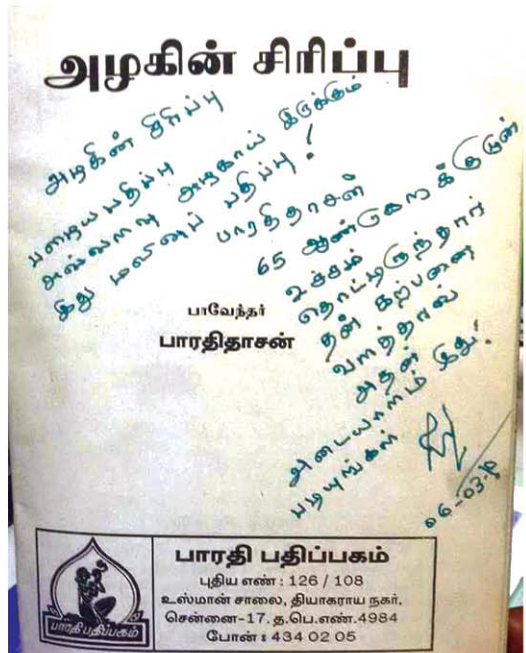 அழகின் சிரிப்பு
அழகின் சிரிப்பு
பழைய பதிப்பு
அவ்வளவு அழகாய் இருக்கும்
இது மலிவுப் பதிப்பு!
பாரதிதாசன்
65 ஆண்டுகளுக்குமுன்
உச்சம்
தொட்டிருந்தார்
தன் கற்பனை
வளத்தால்
அதன்
அடையாளம் இது!
படியுங்கள்
06-03-
பாவேந்தர்
பாரதிதாசன்
பாரதி பதிப்பகம்
பாரதி பதிப்பகம்
புதிய எண் : 126 / 108
உஸ்மான் சாலை, தியாகராய நகர்.
சென்னை-17. த.பெ.எண்.4984
போன் : 434 02 05